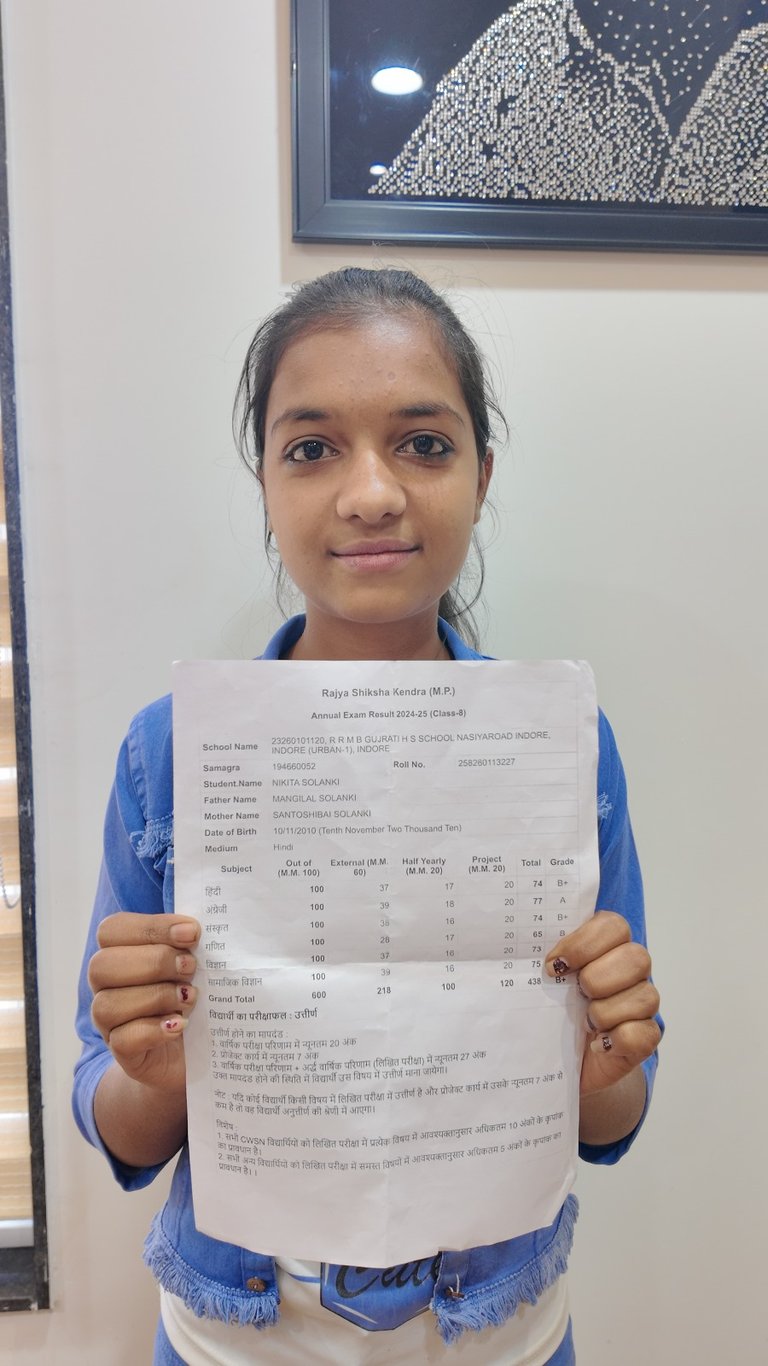 Rajya Shiksha Kendra (M.P.)
Annual Exam Result 2024-25 (Class-8)
School Name 23260101120, R R M B GUJRATI H S SCHOOL NASIYAROAD INDORE,
INDORE (URBAN-1), INDORE
Samagra 194660052 Roll No. 258260113227
Student.Name NIKITA SOLANKI
Father Name MANGILAL SOLANKI
Mother Name SANTOSHIBAI SOLANKI
Date of Birth 10/11/2010 (Tenth November Two Thousand Ten)
Medium Hindi
Subject Out of (M.M. 100) External (M.M. 60) Half Yearly (M.M. 20) Project (M.M. 20) Total Grade
हिंदी 100 37 17 20 74 B+
अंग्रेजी 100 39 18 20 77 A
संस्कृत 100 38 16 20 74 B+
गणित 100 28 17 20 65 B
विज्ञान 100 37 16 20 73
सामाजिक विज्ञान 100 39 16 20 75
Grand Total 600 218 100 120 438 B+
विद्यार्थी का परीक्षाफल : उत्तीर्ण
उत्तीर्ण होने का मापदंड :
1. वार्षिक परीक्षा परिणाम में न्यूनतम 20 अंक
2. प्रोजेक्ट कार्य में न्यूनतम 7 अंक
3. वार्षिक परीक्षा परिणाम + अर्द्ध वार्षिक परिणाम (लिखित परीक्षा) में न्यूनतम 27 अंक
उक्त मापदंड होने की स्थिति में विद्यार्थी उस विषय में उत्तीर्ण माना जायेगा।
नोट : यदि कोई विद्यार्थी किसी विषय में लिखित परीक्षा में उत्तीर्ण है और प्रोजेक्ट कार्य में उसके न्यूनतम 7 अंक से
कम है तो वह विद्यार्थी अनुत्तीर्ण की श्रेणी में आएगा।
विशेष :
1. सभी CWSN विद्यार्थियों को लिखित परीक्षा में प्रत्येक विषय में आवश्यक्तानुसार अधिकतम 10 अंकों के कृपांक
का प्रावधान है।
2. सभी अन्य विद्यार्थियों को लिखित परीक्षा में समस्त विषयों में आवश्यक्तानुसार अधिकतम 5 अंकों के कृपांक का
प्रावधान है। ।